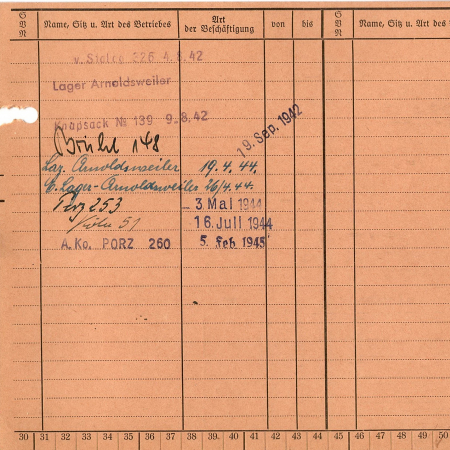 S B N Name, Sitz u. Art des Betriebes Art der Beschäftigung von bis S B N Name, Sitz u. Art des
v. Stalag 326 4.8.42
Lager Arnoldsweiler
Knapsack № 139 9.8.42
Brühl 148 19. Sep. 1942
Laz. Arnoldsweiler 19.4.44.
E. Lager-Arnoldsweiler 26/4.44.
253 3. Mai 1944
Köln 51 16. Juli 1944
A.Ko. PORZ 260 5. Feb 1945
30 31 32 33 34 35 36 37 38 39 40 41 42 43 44 45 46 47 48 49 50